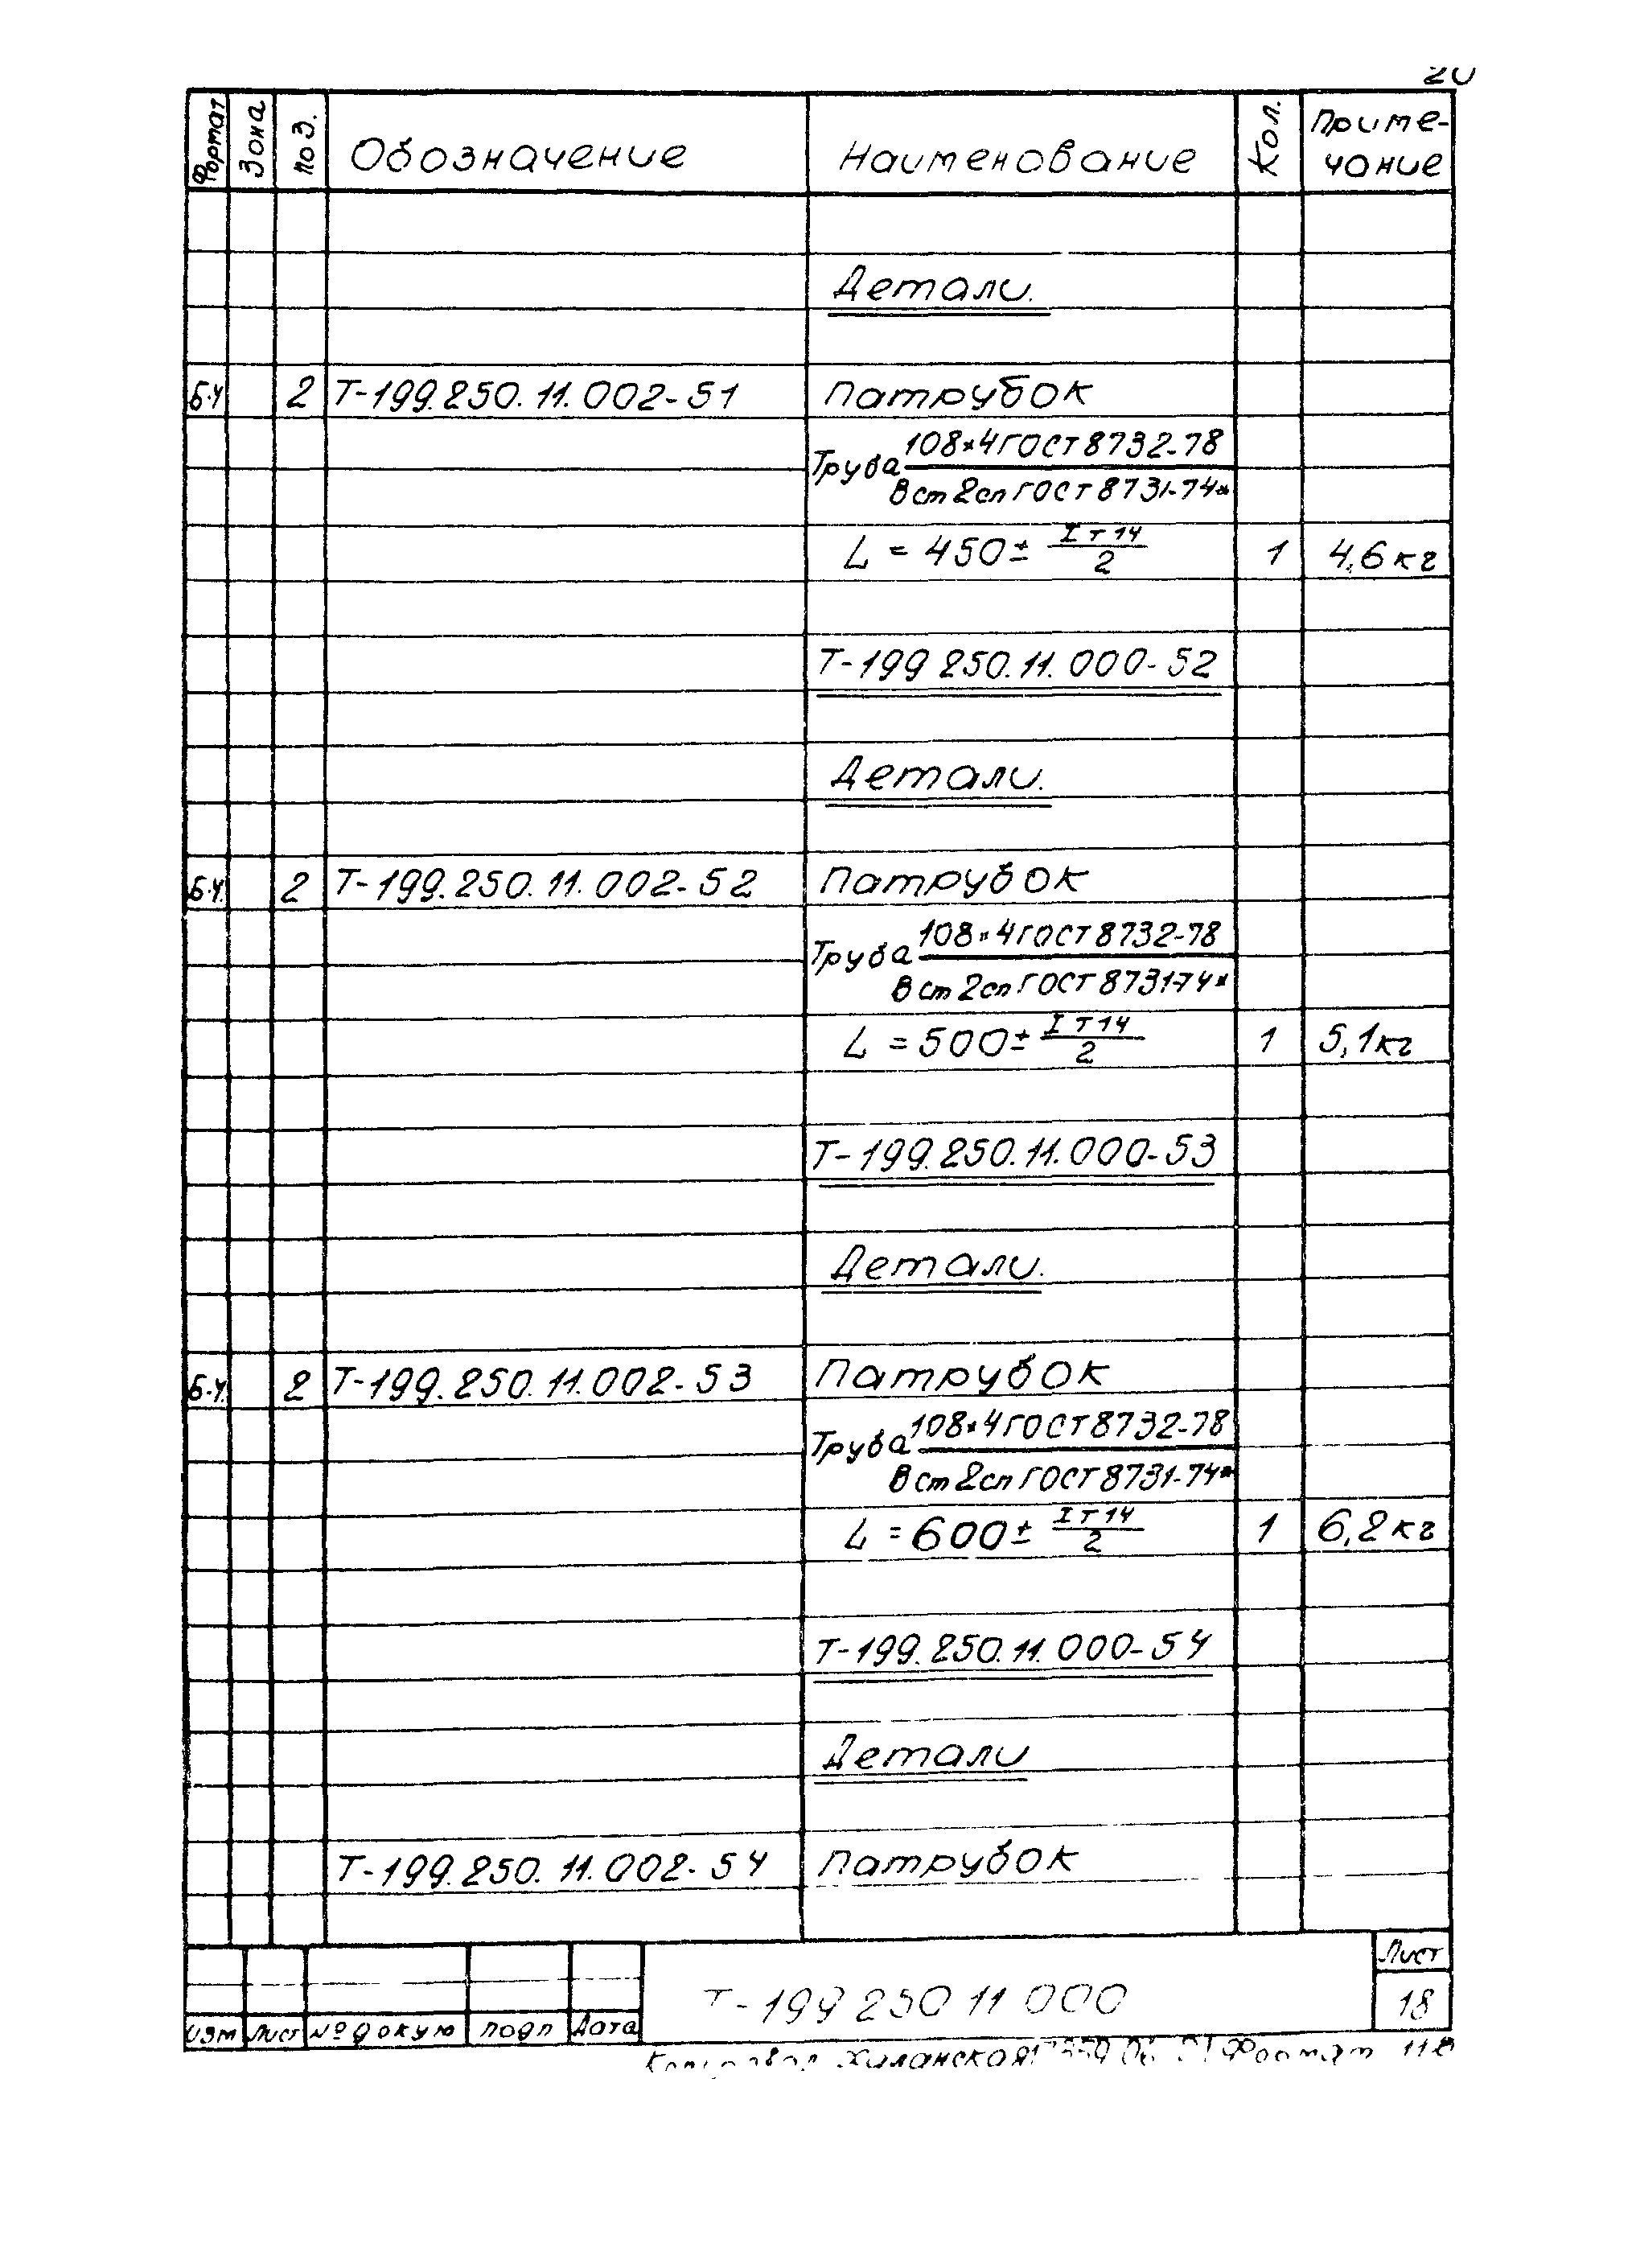 20
Формат Зона Поз. Обозначение Наименование Кол. Приме-
чание
Детали.
Б.Ч 2 Т-199.250.11.002-51 Патрубок
108×4 ГОСТ 8732-78
Труба
В ст 2сп ГОСТ 8731-74*
L = 450 ± IТ14/2 1 4,6 кг
Т-199 250.11.000-52
Детали.
Б.Ч. 2 Т-199.250.11.002-52 Патрубок
108×4 ГОСТ 8732-78
Труба
В ст 2сп ГОСТ 8731-74*
L = 500 ± IТ14/2 1 5,1 кг
Т-199.250.11.000-53
Детали.
Б.Ч. 2 Т-199.250.11.002-53 Патрубок
108×4 ГОСТ 8732-78
Труба
В ст 2сп ГОСТ 8731-74*
L = 600 ± IТ14/2 1 6,2 кг
Т-199.250.11.000-54
Детали
Т-199.250.11.002-54 Патрубок
Т-199 250 11 000
Лист
18
Изм Лист № докум Подп Дата
Формат